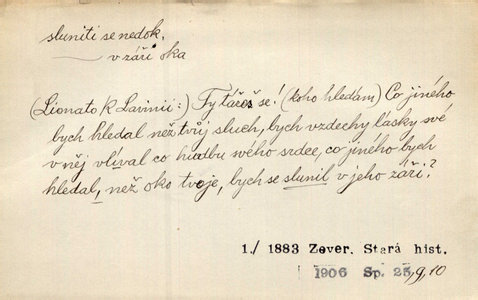 sluniti se nedok.
v záři oka
(Lionato k Lavinii:) Ty tážeš se! (koho hledám) Co jiného
bych hledal než tvůj sluch, bych vzdechy lásky své
v něj vlíval co hudbu svého srdce, co jiného bych
hledal, než oko tvoje, bych se slunil v jeho záři?
1./ 1883 Zever. Stará hist.
1906 Sp. 25,9,10